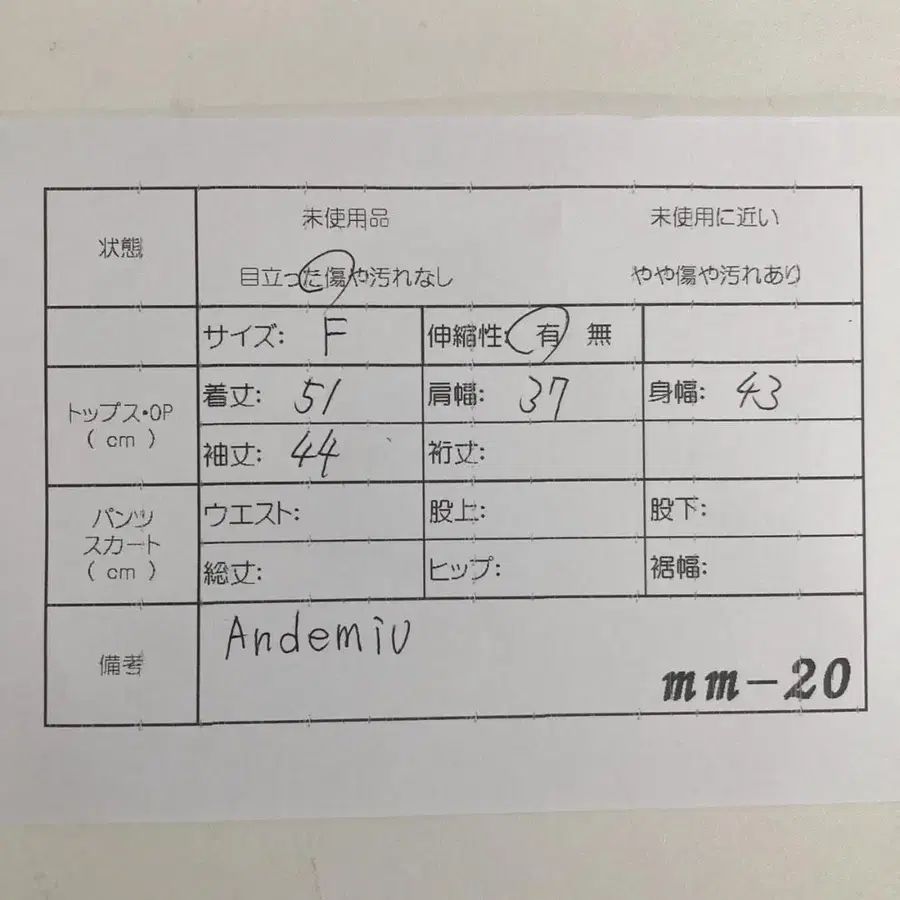 状態
未使用品 未使用に近い
目立った傷や汚れなし やや傷や汚れあり
サイズ: F 伸縮性: 有 無
トップス・OP
( cm )
着丈: 51 肩幅: 37 身幅: 43
袖丈: 44 裄丈:
パンツ
スカート
( cm )
ウエスト: 股上: 股下:
総丈: ヒップ: 裾幅:
備考
Andemiu
mm-20